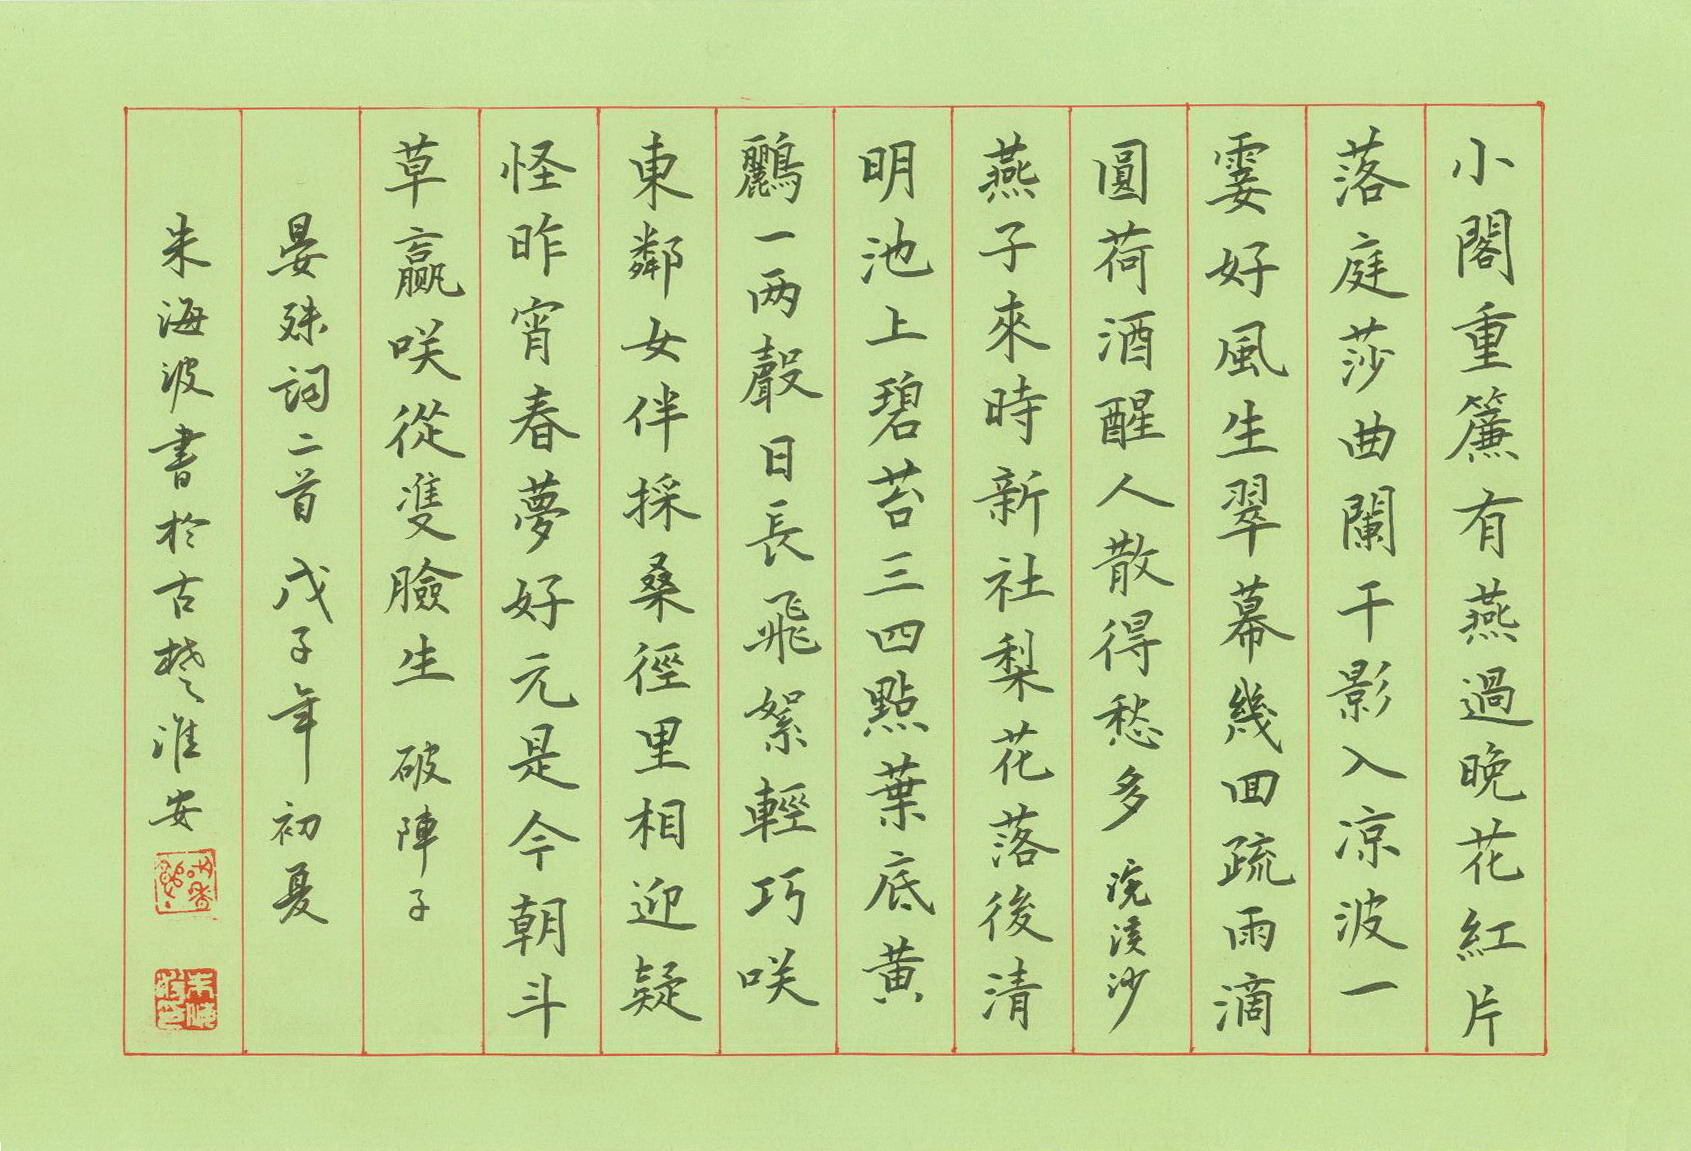 小閣重簾有燕過晚花紅片
落庭莎曲闌干影入凉波一
霎好風生翠幕幾囬疏雨滴
圓荷酒醒人散得愁多 浣溪沙
燕子來時新社梨花落後清
明池上碧苔三四點葉底黄
鸝一两聲日長飛絮輕巧咲
東鄰女伴採桑徑里相迎疑
怪昨宵春夢好元是今朝斗
草贏咲從雙臉生 破陣子
晏殊詞二首 戊子年初夏
朱海波書於古楚淮安